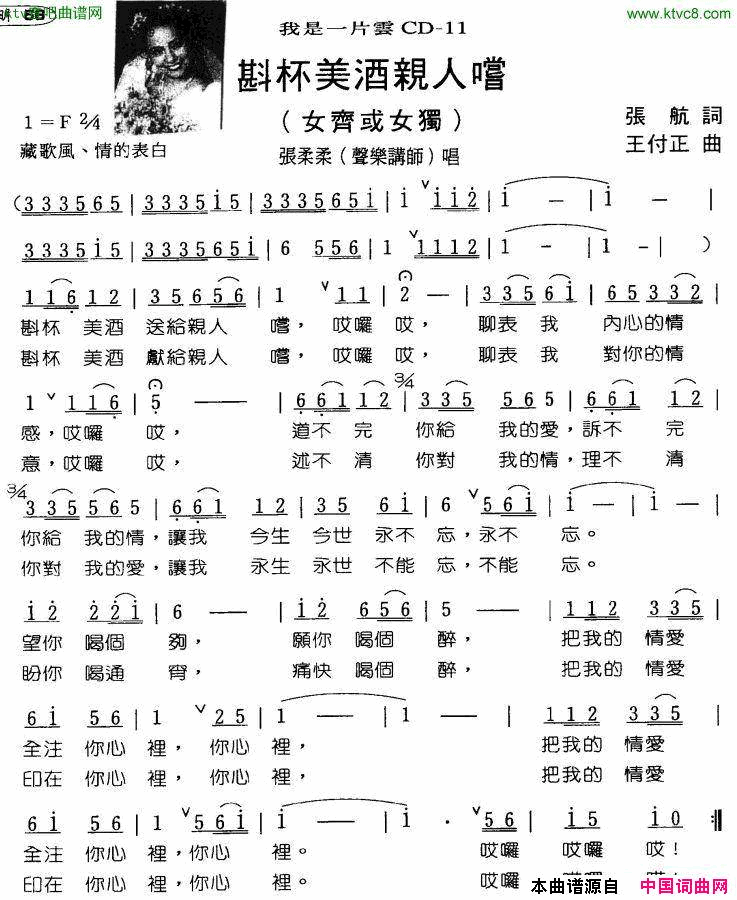 www.ktvc8.com
我是一片雲 CD-11
斟杯美酒親人嚐
1=F 2/4
（女齊或女獨）
張 航 詞
王付正 曲
藏歌風、情的表白
張柔柔（聲樂講師）唱
（3 3 3 5 6 5 | 3 3 3 5 i 5 | 3 3 3 5 6 5 i | i ∨ i i 2 | i — | i — |
3 3 3 5 i 5 | 3 3 3 5 6 5 i | 6 5 5 6 | 1 ∨ 1 1 1 2 | 1 - | 1 - | ）
1 1 6 1 2 | 3 5 6 5 6 | 1 ∨ 1 1 | 2 — | 3 3 5 6 i | 6 5 3 3 2 |
斟杯 美酒 送給親人 嚐，哎囉 哎， 聊表 我 內心的情
斟杯 美酒 獻給親人 嚐，哎囉 哎， 聊表 我 對你的情
3/4
1 ∨ 1 1 6 | 5 — | 6 6 1 1 2 | 3 3 5 5 6 5 | 6 6 1 1 2 |
感，哎囉 哎， 道不 完 你給 我的愛，訴不 完
意，哎囉 哎， 述不 清 你對 我的情，理不 清
3/4
3 3 5 5 6 5 | 6 6 1 1 2 | 3 5 6 i | 6 ∨ 5 6 i | i — | i — |
你給 我的情，讓我 今生 今世 永不 忘，永不 忘。
你對 我的愛，讓我 永生 永世 不能 忘，不能 忘。
i 2 2 2 i | 6 — | i 2 6 5 6 | 5 — | 1 1 2 3 3 5 |
望你 喝個 夠， 願你 喝個 醉， 把我的 情愛
盼你 喝通 宵， 痛快 喝個 醉， 把我的 情愛
6 i 5 6 | 1 ∨ 2 5 | 1 — | 1 — | 1 1 2 3 3 5 |
全注 你心 裡，你心 裡， 把我的 情愛
印在 你心 裡，你心 裡， 把我的 情愛
6 i 5 6 | 1 ∨ 5 6 i | i — | i · ∨ 5 6 | i 5 | i 0 :||
全注 你心 裡，你心 裡。 哎囉 哎囉 哎！
印在 你心 裡，你心 裡。 哎囉
本曲谱源自 中国词曲网